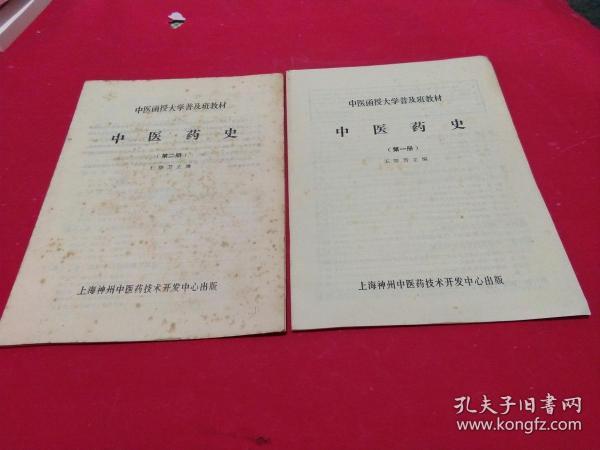 中医函授大学普及班教材
中医药史
（第二册）
主编
上海神州中医药技术开发中心出版
中医函授大学普及班教材
中医药史
（第一册）
主编
上海神州中医药技术开发中心出版
孔夫子旧书网
www.kongfz.com